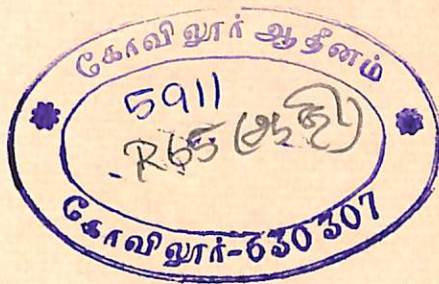 கோவிலூர் ஆதீனம்
5911
R65 (ஆதி)
கோவிலூர்-630 307